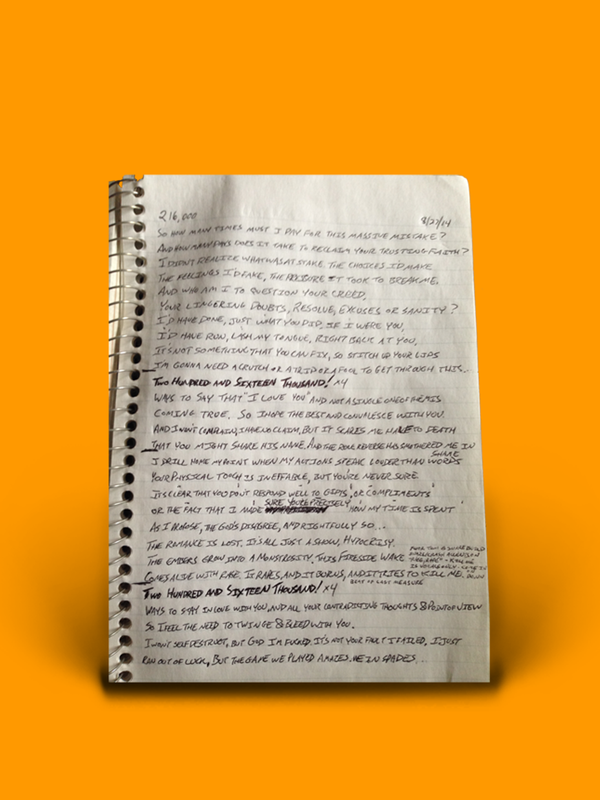 216,000 8/27/14
So how many times must I pay for this massive mistake?
And how many days does it take to reclaim your trusting faith?
I didn't realize what was at stake. The choices I'd make
The feelings I'd fake, the pressure it took to break me,
And who am I to question your creed,
Your lingering doubts, resolve, excuses or sanity?
I'd have done, just what you did, if I were you,
I'd have run, lash my tongue, right back at you,
It's not something that you can fix, so stitch up your lips
I'm gonna need a crutch or a trip or a fool to get through this...
Two Hundred and Sixteen Thousand! x4
Ways to say that "I love you" and not a single one of them is
coming true. So I hope the best and convalesce with you.
And I won't complain, I have no claim, but it scares me half to death
That you might share his name. And the reverse has smothered me in
shame
I drill home my point when my actions speak louder than words
Your physical touch is ineffable, but you're never sure
It's clear that you don't respond well to "gifts", or compliments
sure you're precisely
or the fact that I made how my time is spent
As I propose, the gods disagree, and rightfully so...
The romance is lost, it's all just a show, hypocrisy.
The embers grow into a monstrosity, this fireside wake
Comes alive with rage, it rapes, and it burns, and it tries to kill me.
beat of last measure
Two Hundred and Sixteen Thousand! x4
Ways to stay in love with you, and all your contradicting thoughts & point of view
So I feel the need to twinge & bleed with you.
I won't self destruct, but God I'm fucked. It's not your fault I failed, I just
ran out of luck, but the game we played amazes me in spades...